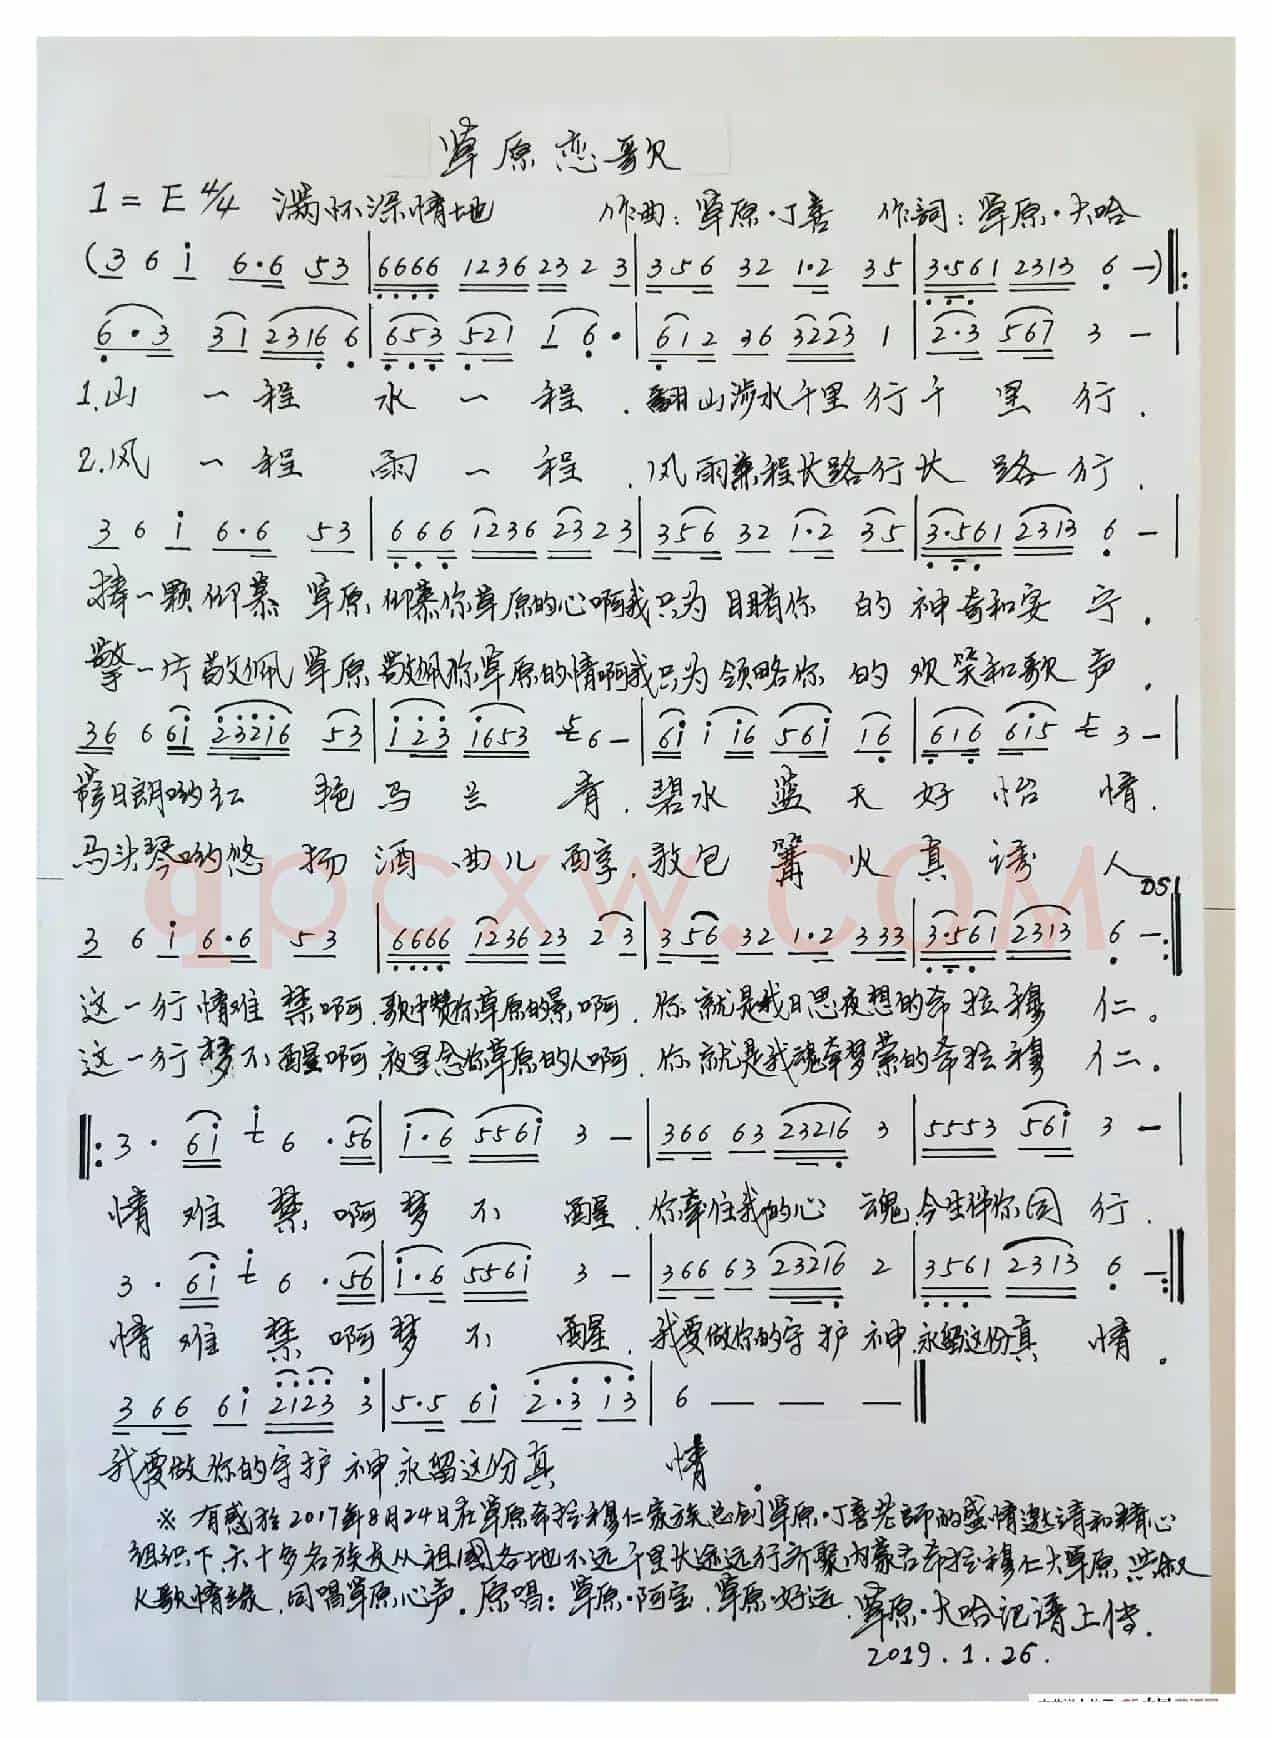 草原恋歌
1=E 4/4 满怀深情地 作曲:草原·丁喜 作詞:草原·大哈
(3 6 i 6·6 53 | 6666 1236 23 2 3 | 356 32 1·2 35 | 3·561 2313 6 —) ‖:
6·3 31 2316 6 | 653 521 1 6· | 612 36 3223 1 | 2·3 567 3 — |
1.山一程水一程.翻山涉水千里行千里行.
2.风一程雨一程.风雨兼程长路行长路行.
3 6 i 6·6 53 | 666 1236 23 23 | 356 32 1·2 35 | 3·561 2313 6 — |
捧一颗仰慕草原,仰慕你草原的心啊我只为目睹你的神奇和安宁.
擎一片敬佩草原敬佩你草原的情啊我只为领略你的欢笑和歌声.
36 6 6i 23216 53 | i23 i653 6 — | 6i i i6 56i i6 | 616 6i5 3 — |
朗哟红艳马兰青.碧水蓝天好怡情.
马头琴哟悠扬酒曲儿醇.敖包篝火真诱人
DS
3 6 i 6·6 53 | 6666 1236 23 23 | 356 32 1·2 333 | 3·561 2313 6 — :‖
这一行情难禁啊,歌中赞你草原的景啊,你就是我日思夜想的希拉穆仁。
这一行梦不醒啊,夜里念你草原的人啊,你就是我魂牵梦萦的希拉穆仁。
‖: 3· 6i i 6·56 | i·6 556i 3 — | 366 63 23216 3 | 5553 56i 3 — |
情难禁啊梦不醒.你牵住我的心魂,今生伴你同行.
3· 6i i 6·56 | i·6 556i 3 — | 366 63 23216 2 | 3561 2313 6 — :‖
情难禁啊梦不醒.我要做你的守护神,永留这份真情.
366 6i 2123 3 | 5·5 6i 2·3 i3 | 6 — — — ‖
我要做你的守护神,永留这份真情.
※有感於2017年8月24日在草原希拉穆仁家族总创草原·丁喜老師的盛情邀请和精心
组织下,六十多名族友从祖國各地不远千里长途远行齐聚内蒙古希拉穆仁大草原,共叙
歌情缘,同唱草原心声。原唱:草原·阿宝,草原·好远,草原·大哈记谱上传.
2019.1.26.
qpcxw.com